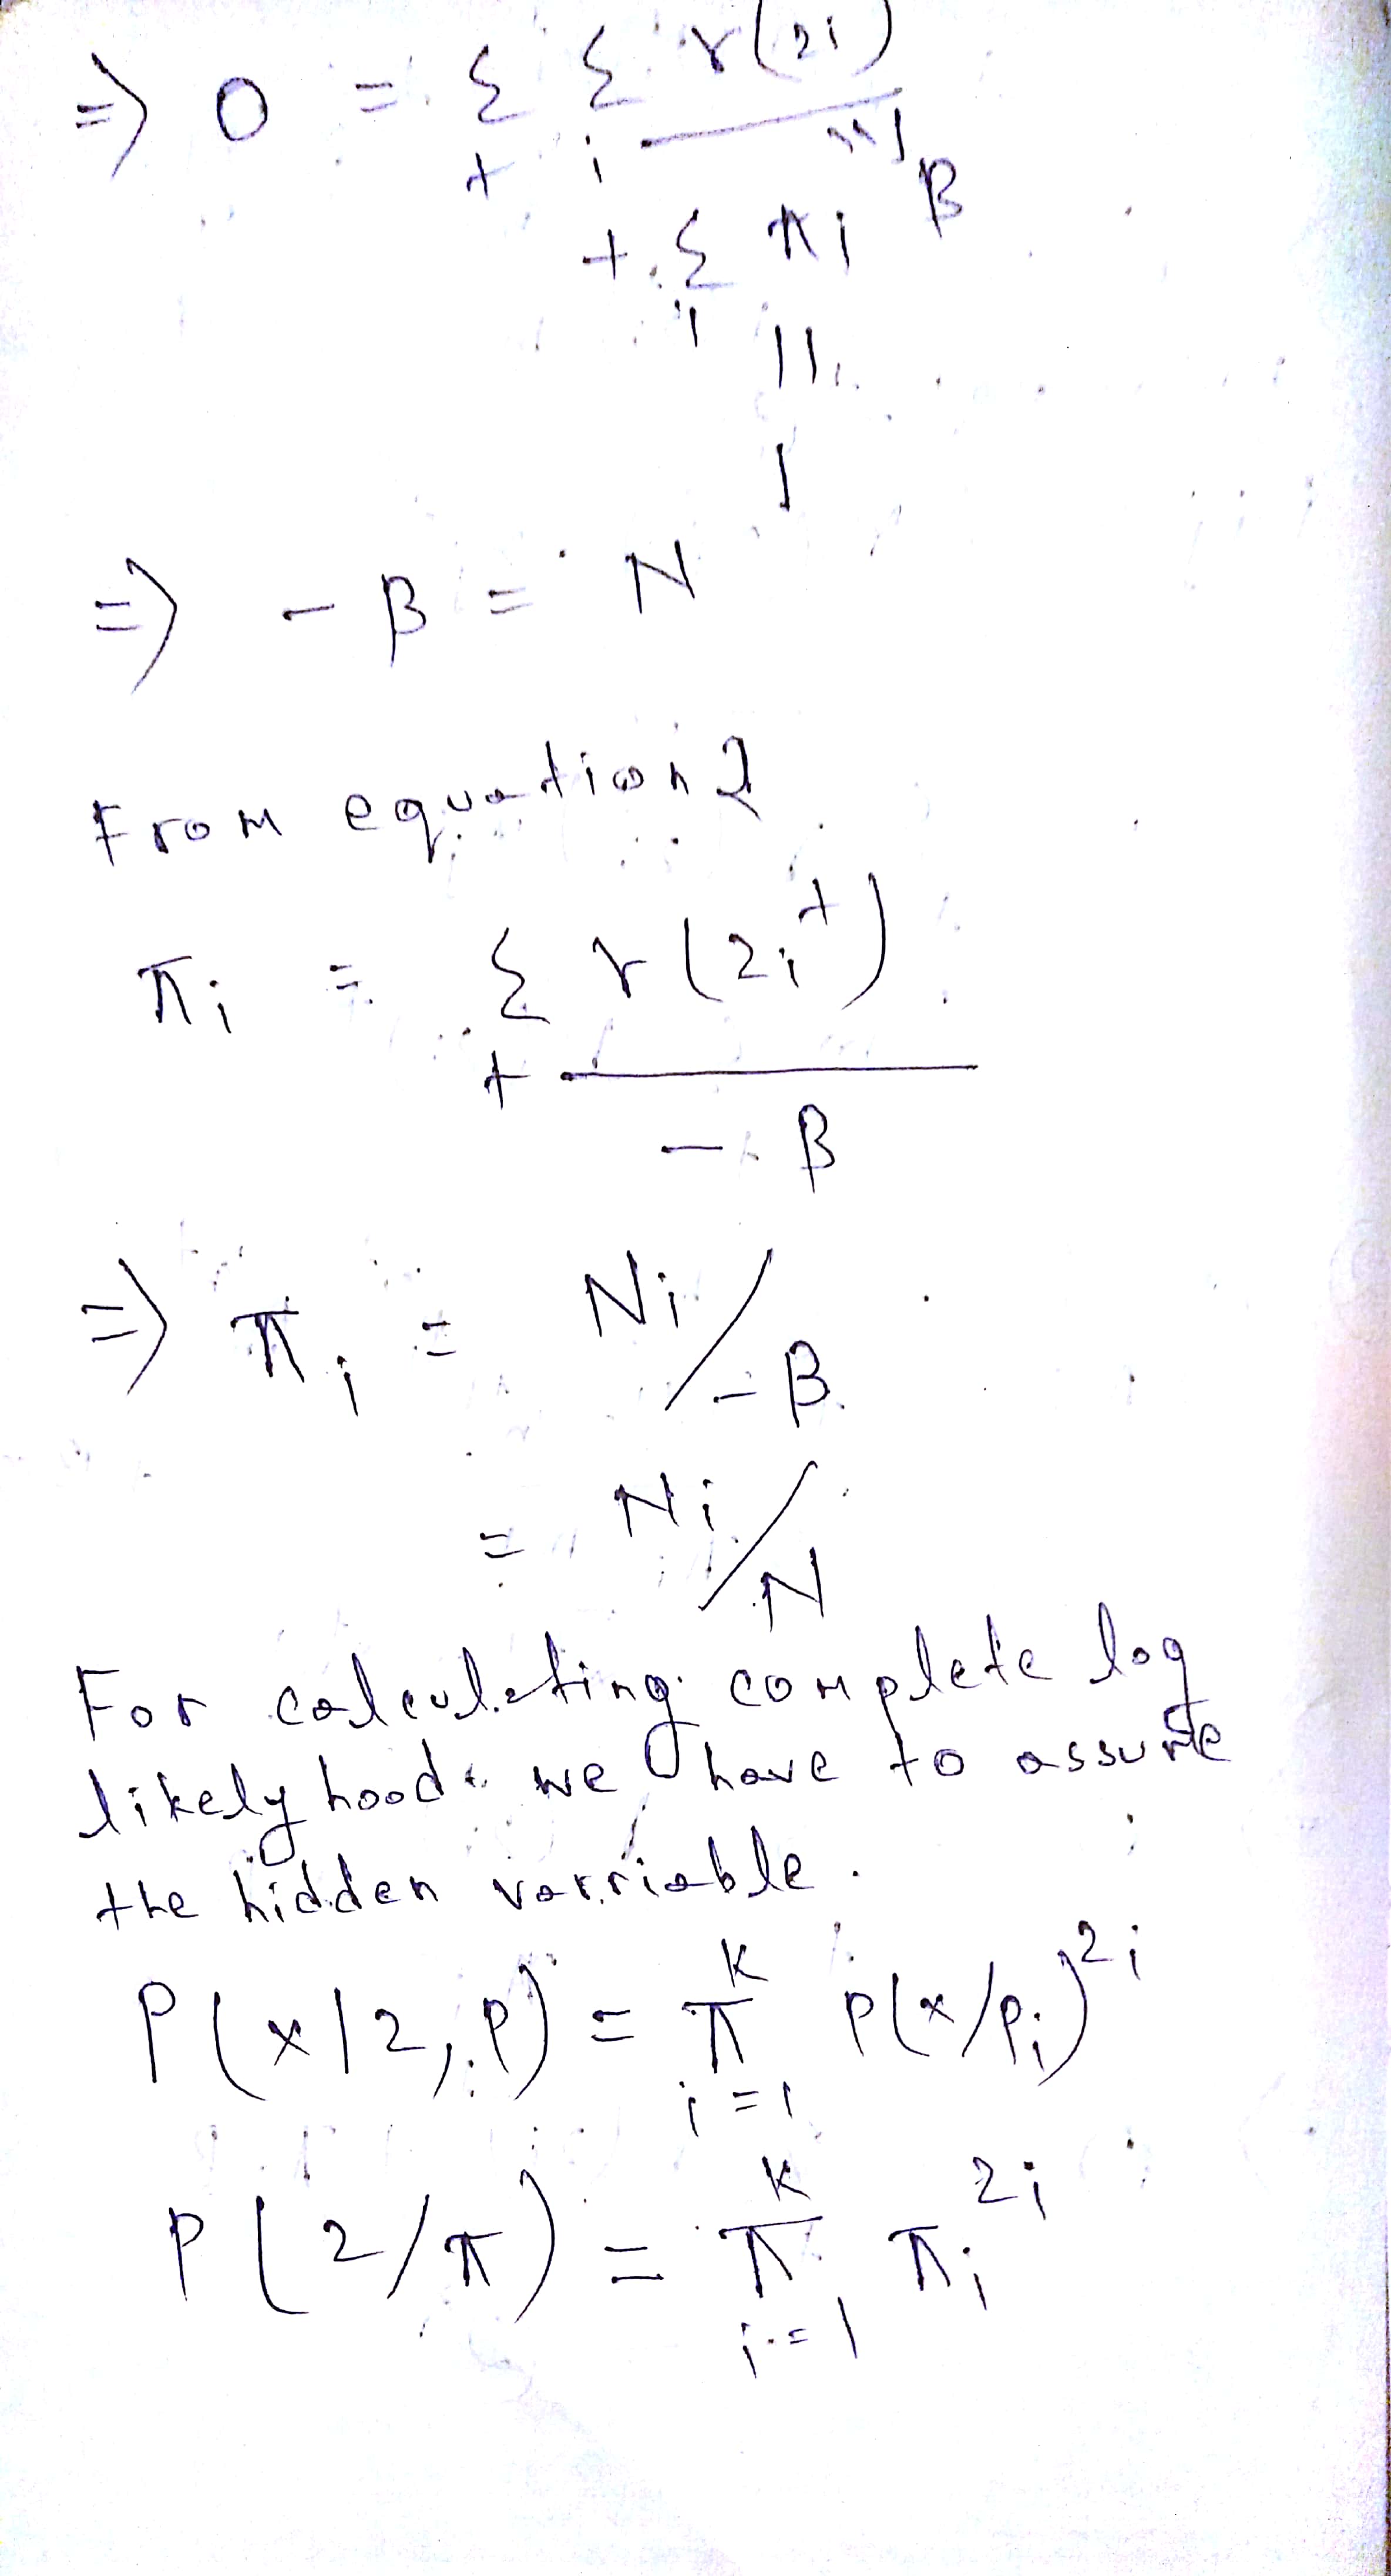 => 0 = Σ Σ r(zi)
t i
"1
+ Σ πi β
i
||
1
=> - β = N
From equation 2
πi = Σ r(zi^t)
t
- β
=> πi = Ni/-β
= Ni/N
For calculating complete log
likelyhood we have to assume
the hidden varriable.
P(x|z, P) = π P(x/Pi)^zi
K
i=1
P(z/π) = π πi^zi
K
i=1